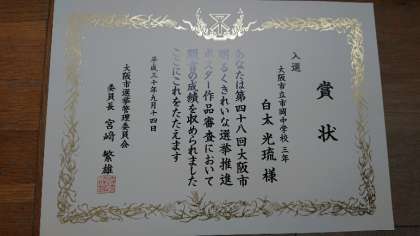 賞状
入選
大阪市立市岡中学校 三年
白太 光琉 様
あなたは第四十八回大阪市
明るくきれいな選挙推進
ポスター作品審査において
頭書の成績を収められました
ここにこれをたたえます
平成三十年九月十四日
大阪市選挙管理委員会
委員長 宮﨑 繁雄